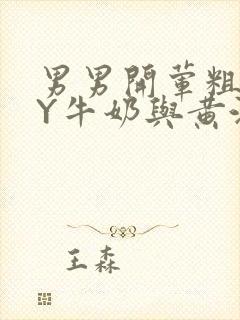 男男開葷粗
Y牛奶與黃
王森